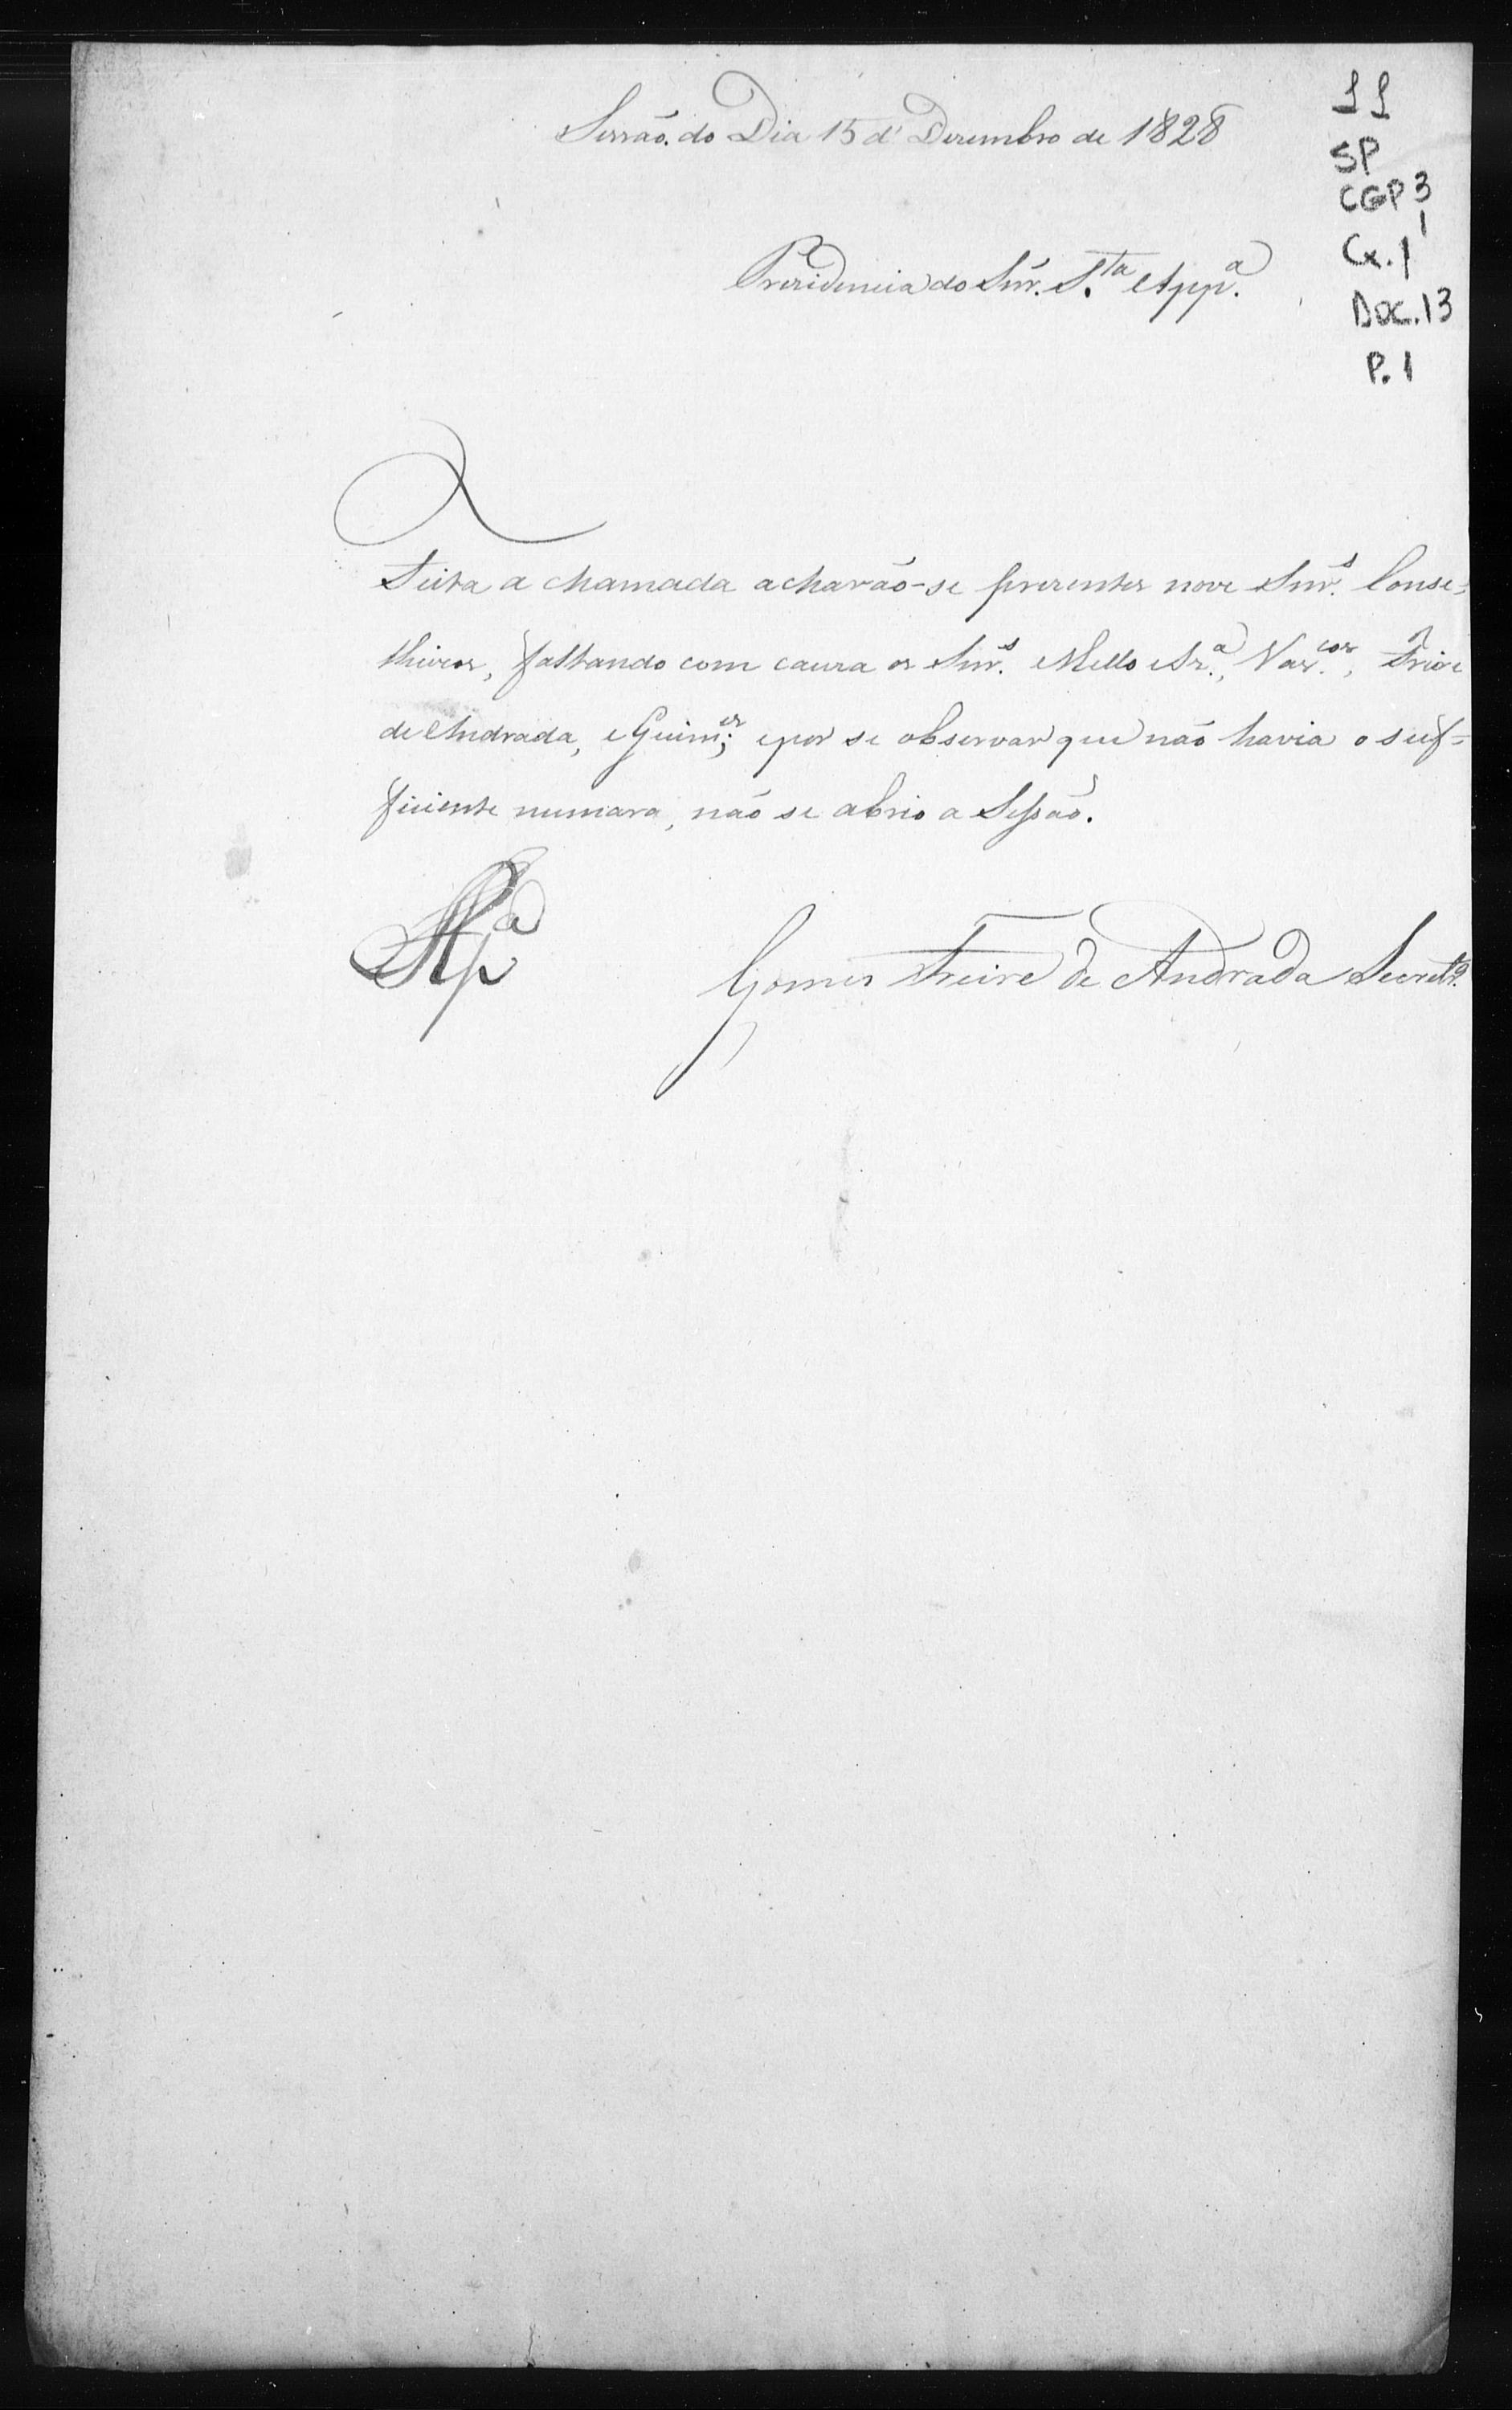 Sessão do Dia 15 d' Dezembro de 1828
SP
CGP 3
1
Cx. 1
DOC. 13
P. 1
Presidencia do Snr. S.ta App.a
Feita a chamada acharão-se prezentes nove Snr.s Conse=
lheiros, faltando com cauza os Snr.s Mello e Sz.a, Vas.cos, Freire
de Andrada, e Guim.es; e por se observar que não havia o suf=
ficiente numaro, não se abrio a Sessão.
Gomes Freire de Andrada Secret.o